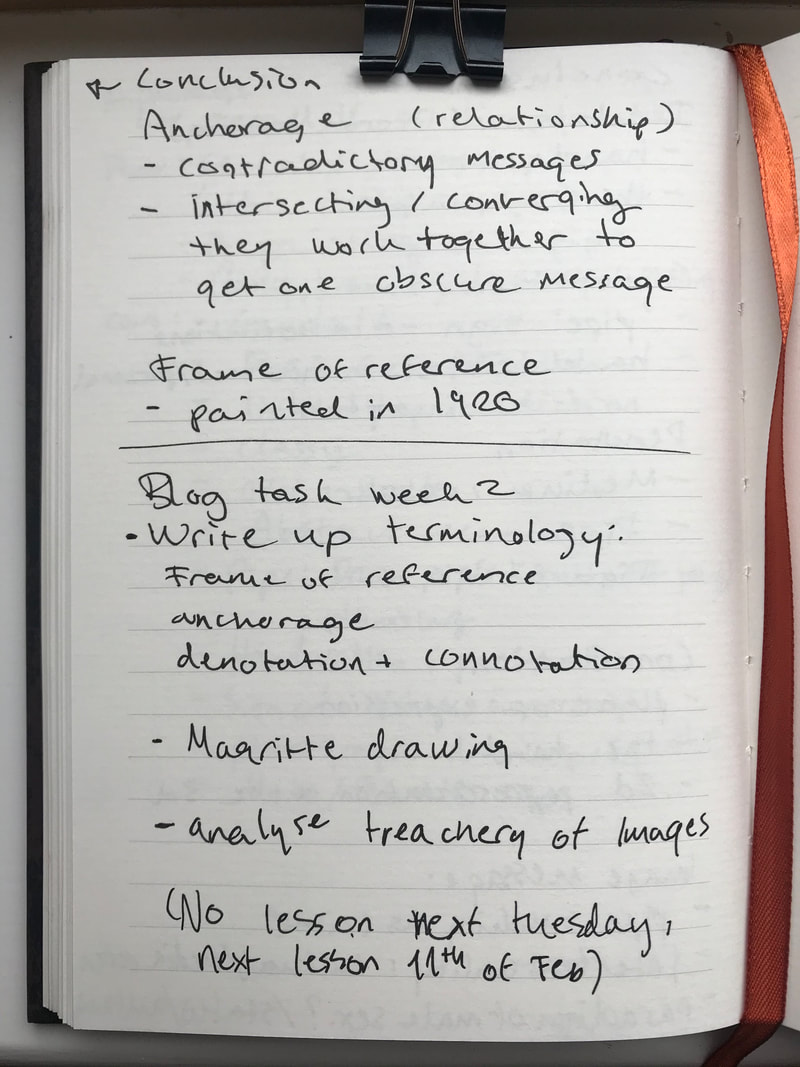 ← Conclusion
Anchorage (relationship)
- contradictory messages
- intersecting / converging
they work together to
get one obscure message
Frame of reference
- painted in 1920
Blog task week 2
• Write up terminology:
Frame of reference
anchorage
denotation + connotation
- Magritte drawing
- analyse treachery of Images
(No lesson next tuesday,
next lesson 11th of Feb)